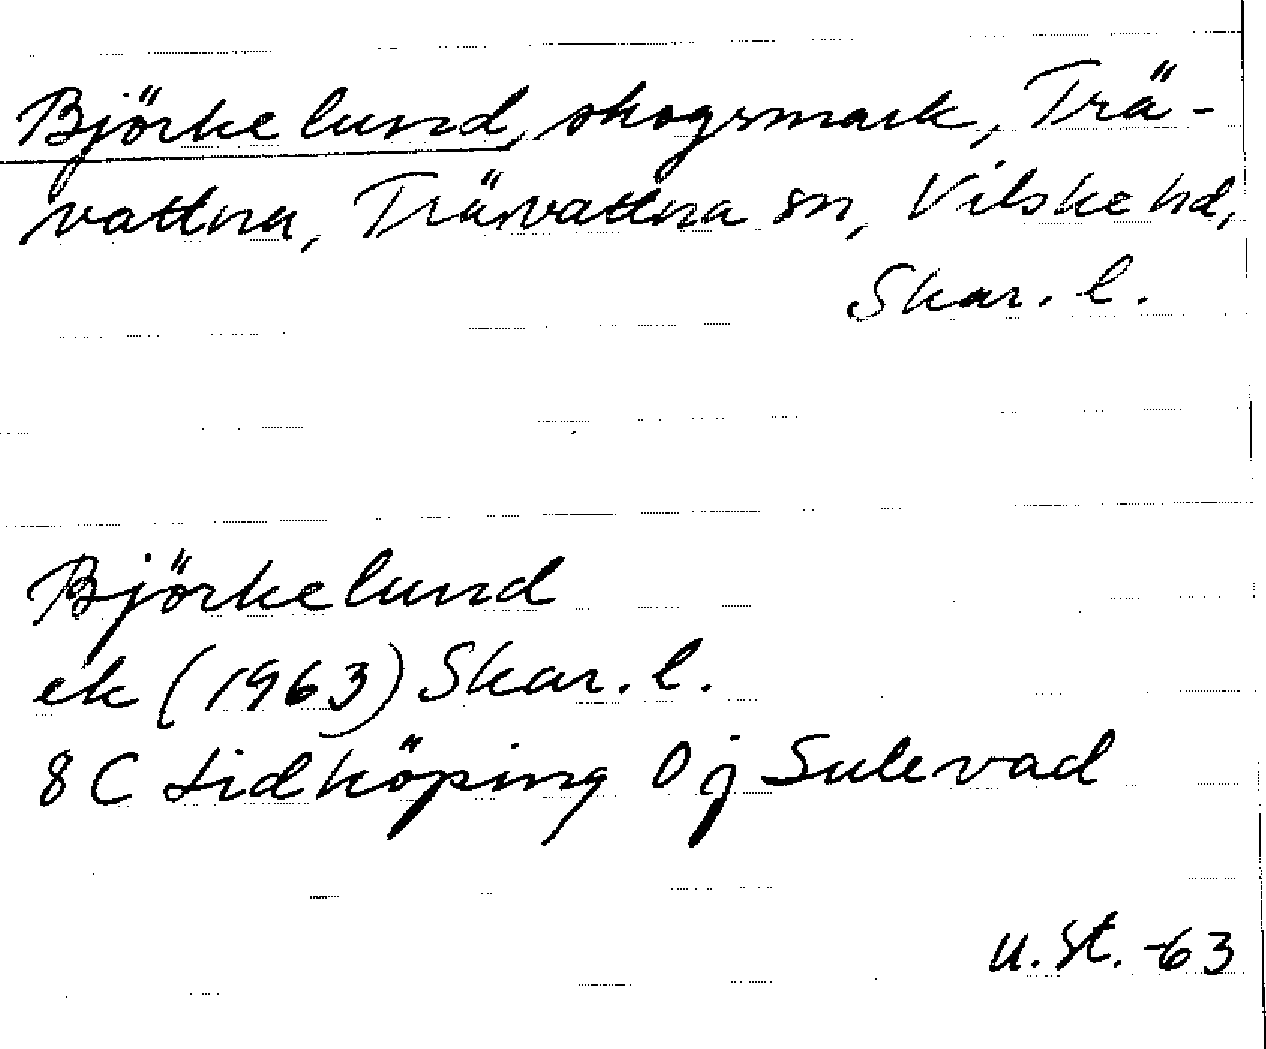 Björkelund, skogsmark, Trä-
vattna, Trävattna sn, Vilske hd,
Skar. l.
Björkelund
ek (1963) Skar. l.
8 C Lidköping 0 j Sulevad
U. St. -63